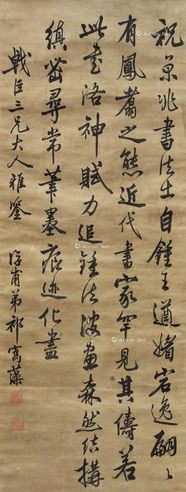 祝京兆書法出自鍾王遒媚宕逸翩翩
有鳳翥之態近代書家罕見其儔若
此書洛神賦力追鍾法波畫森然結搆
縝密尋常筆墨痕迹化盡
戟臣三兄大人雅鑒
淳甫弟祁寯藻